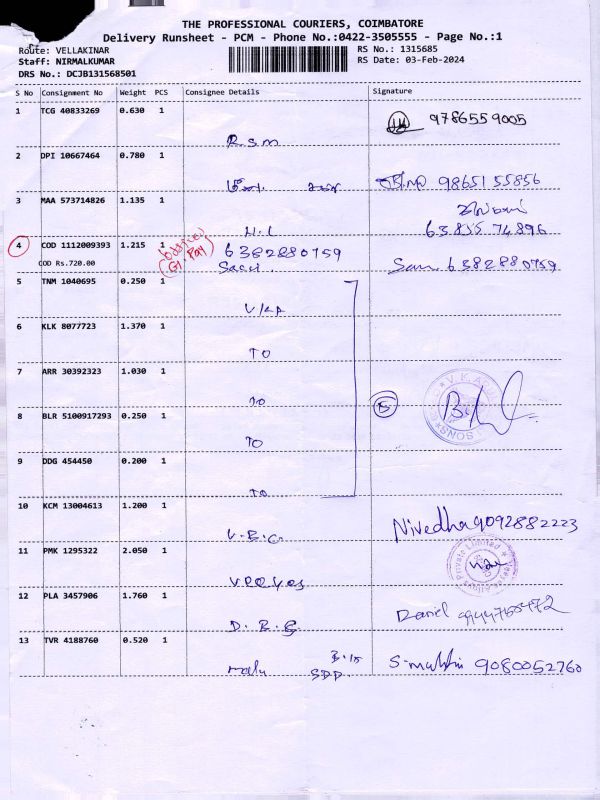 THE PROFESSIONAL COURIERS, COIMBATORE
Delivery Runsheet - PCM - Phone No.:0422-3505555 - Page No.:1
Route: VELLAKINAR
RS No.: 1315685
Staff: NIRMALKUMAR
RS Date: 03-Feb-2024
DRS No.: DCJB131568501
S No Consignment No Weight PCS Consignee Details Signature
1 TCG 40833269 0.630 1
9786559005
R.S.M
2 DPI 10667464 0.780 1
9865155856
3 MAA 573714826 1.135 1
H.L
63855 74896
4 COD 1112009393 1.215 1 6382880759
COD Rs.720.00
(G.Pay)
Sam 6382880759
5 TNM 1040695 0.250 1
V/KA
6 KLK 8077723 1.370 1
TO
7 ARR 30392323 1.030 1
TO
5
8 BLR 5100917293 0.250 1
TO
9 DDG 454450 0.200 1
TO
10 KCM 13004613 1.200 1
V.B.C.
Nivedha 9092882223
11 PMK 1295322 2.050 1
Private Limited
12 PLA 3457906 1.760 1
D.R.S
Daniel
13 TVR 4188760 0.520 1
SDD
9080052760